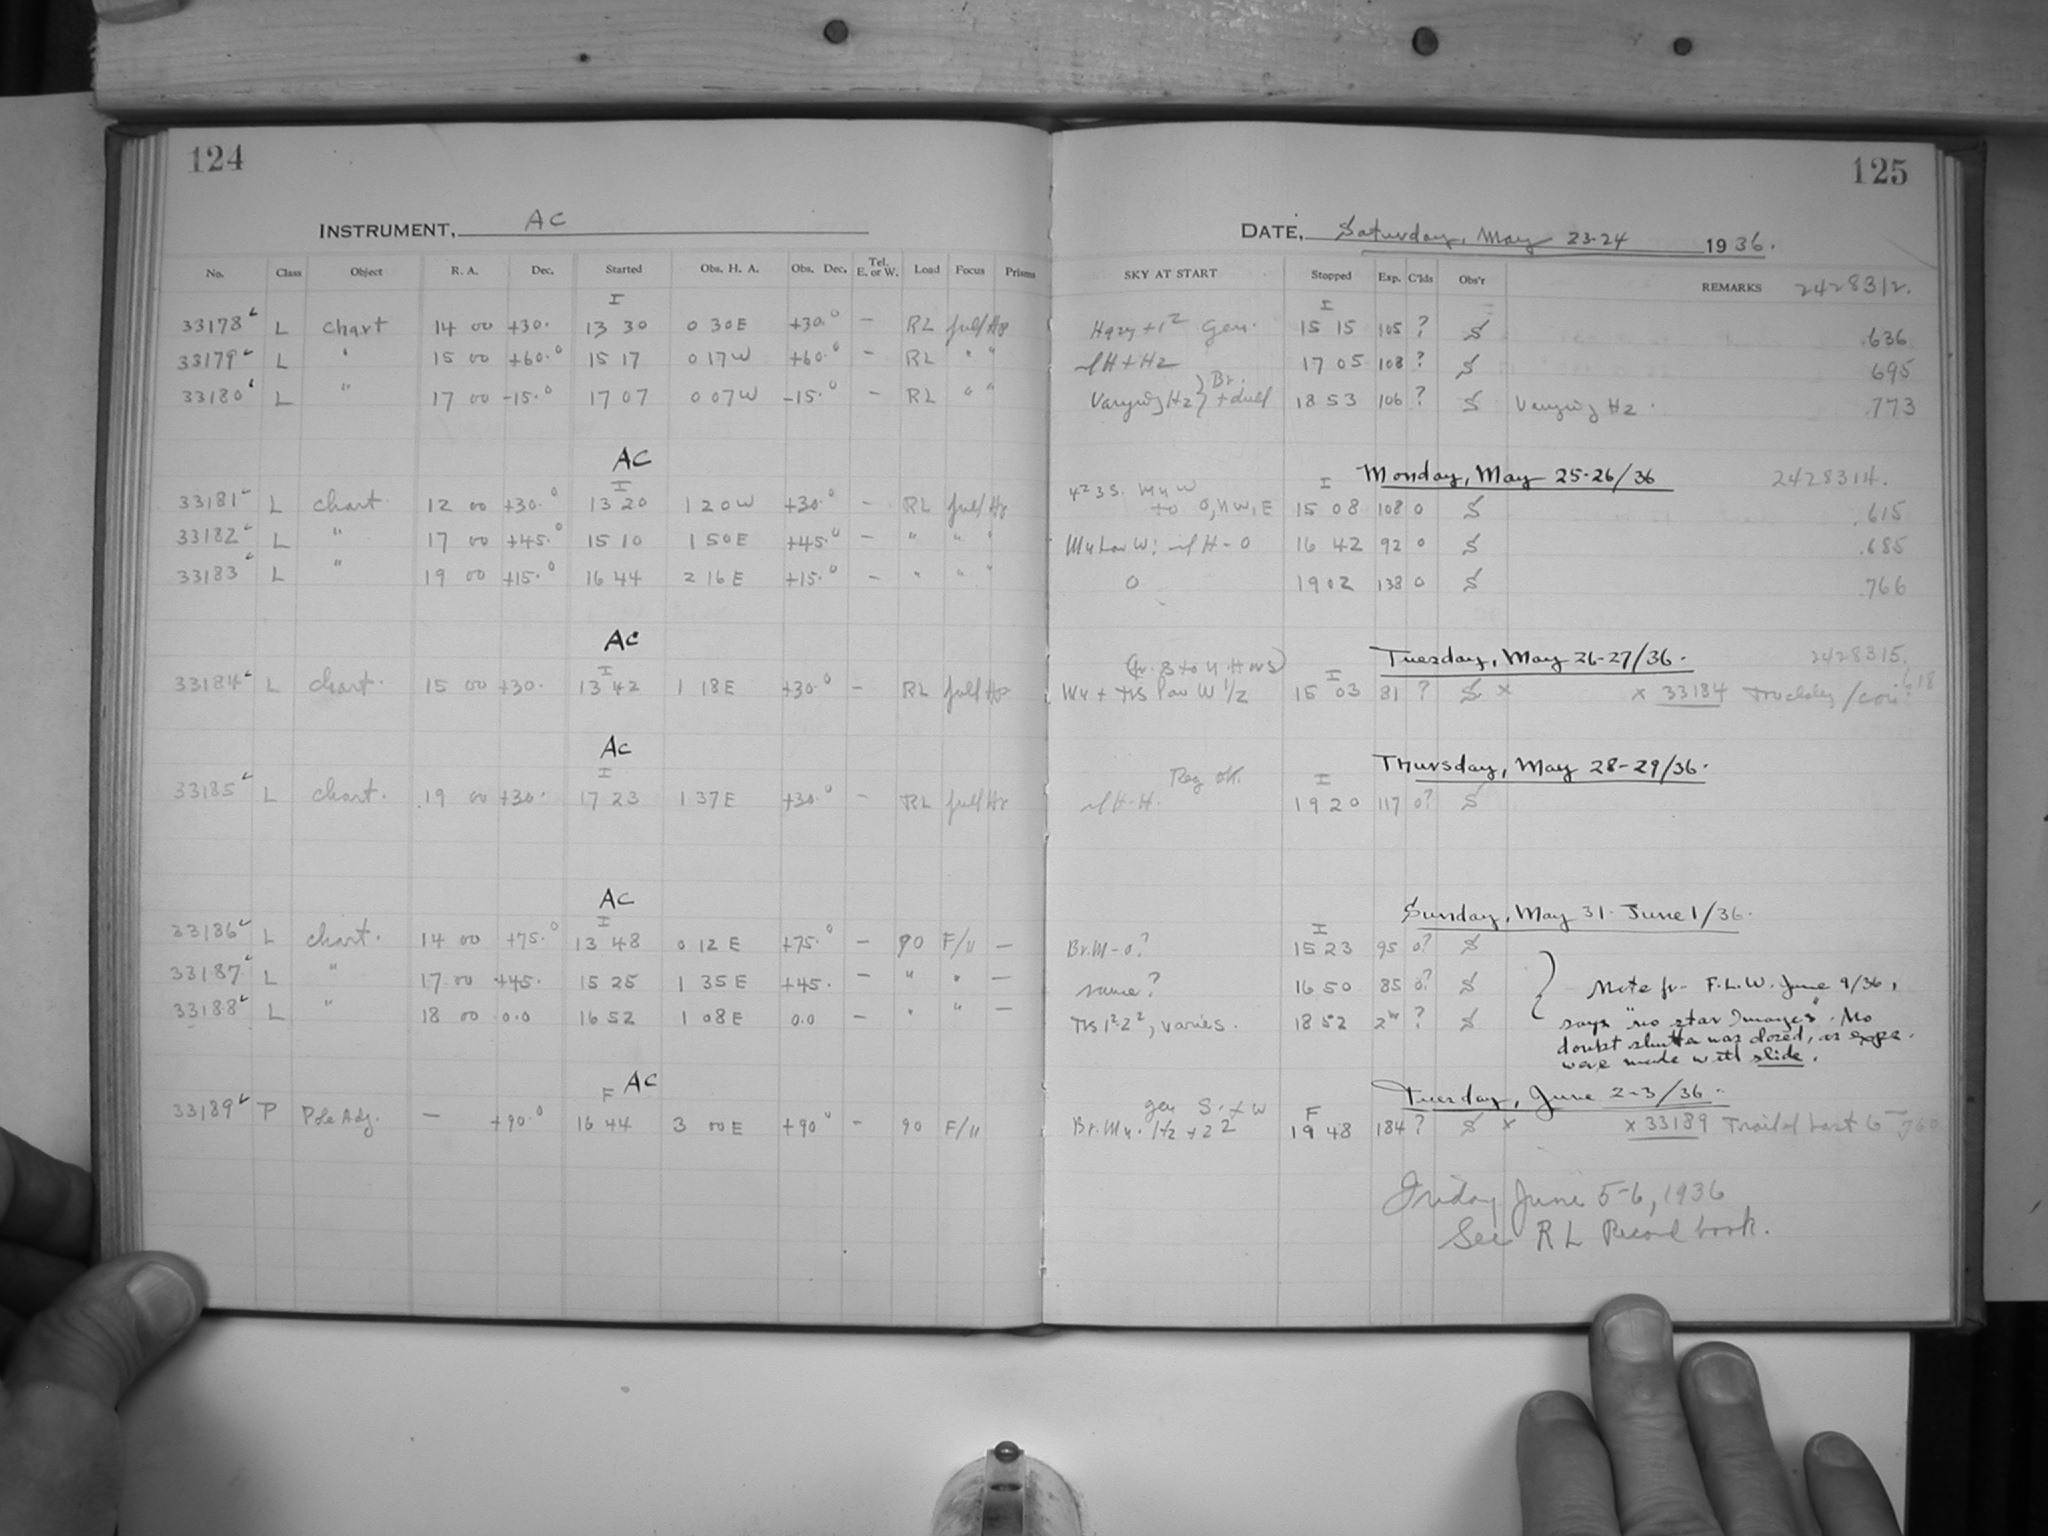 124
INSTRUMENT, AC
No. Class Object R. A. Dec. Started Obs. H. A. Obs. Dec. Tel. E. or W. Load Focus Prisms
I
33178 L Chart 14 00 +30. 13 30 0 30E +30.0 – RL full
33179 L " 15 00 +60.0 15 17 0 17W +60.0 – RL " "
33180 L " 17 00 -15.0 17 07 0 07W -15.0 – RL " "
AC
I
33181 L chart 12 00 +30.0 13 20 1 20W +30.0 – RL full
33182 L " 17 00 +45.0 15 10 1 50E +45.0 – " " "
33183 L " 19 00 +15.0 16 44 2 16E +15.0 – " " "
AC
I
33184 L chart. 15 00 +30. 13 42 1 18E +30.0 – RL full
AC
I
33185 L chart. 19 00 +30. 17 23 1 37E +30.0 – RL full
AC
I
33186 L chart. 14 00 +75.0 13 48 0 12E +75.0 – 90 F/11 –
33187 L " 17 00 +45. 15 25 1 35E +45. – " " –
33188 L " 18 00 0.0 16 52 1 08E 0.0 – " " –
F AC
33189 P Pole Adj. – +90.0 16 44 3 00E +90.0 – 90 F/11
125
DATE, Saturday, May 23-24 1936.
SKY AT START Stopped Exp. C'lds Obs'r REMARKS 2428312.
I
gen. 15 15 105 ? S .636
H + Hz 17 05 108 ? S .695
Varying Hz } Br. + dull 18 53 106 ? S Varying Hz. .773
Monday, May 25-26/36 2428314.
I
to 0, NW, E 15 08 108 0 S .615
low W; H-0 16 42 92 0 S .685
0 19 02 138 0 S .766
Tuesday, May 26-27/36. 2428315.
I
low W 1/2 15 03 81 ? S x x 33184 .618
Thursday, May 28-29/36.
Reg ok.
I
H-H. 19 20 117 0? S
Sunday, May 31-June 1/36.
I
Br. M-0? 15 23 95 0? S
same? 16 50 85 0? S
varies. 18 52 ? S
Note fr. F.L.W. June 9/36,
says "no star images". No
doubt shutter was closed, as exps.
were made with slide.
Tuesday, June 2-3/36.
gen S. + W
F
Br. Hz 19 48 184 ? S x x 33189 Trail of last 6
Friday June 5-6, 1936
See RL Record book.